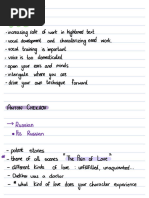 - increasing rate of work in heightened text
- vocal development and characterizing each work.
- vocal training is important
- voice is too domesticated
- open your ears and minds
- interrogate where you are
- drive your own technique forward
ANTON CHEKHOV
→ Russian
→ Its Russian
- potent stories
- theme of all scenes "The Pain of Love"
- different kinds of love - unfulfilled, unrequited...
- Chekhov was a doctor
- * what kind of love does your character experience